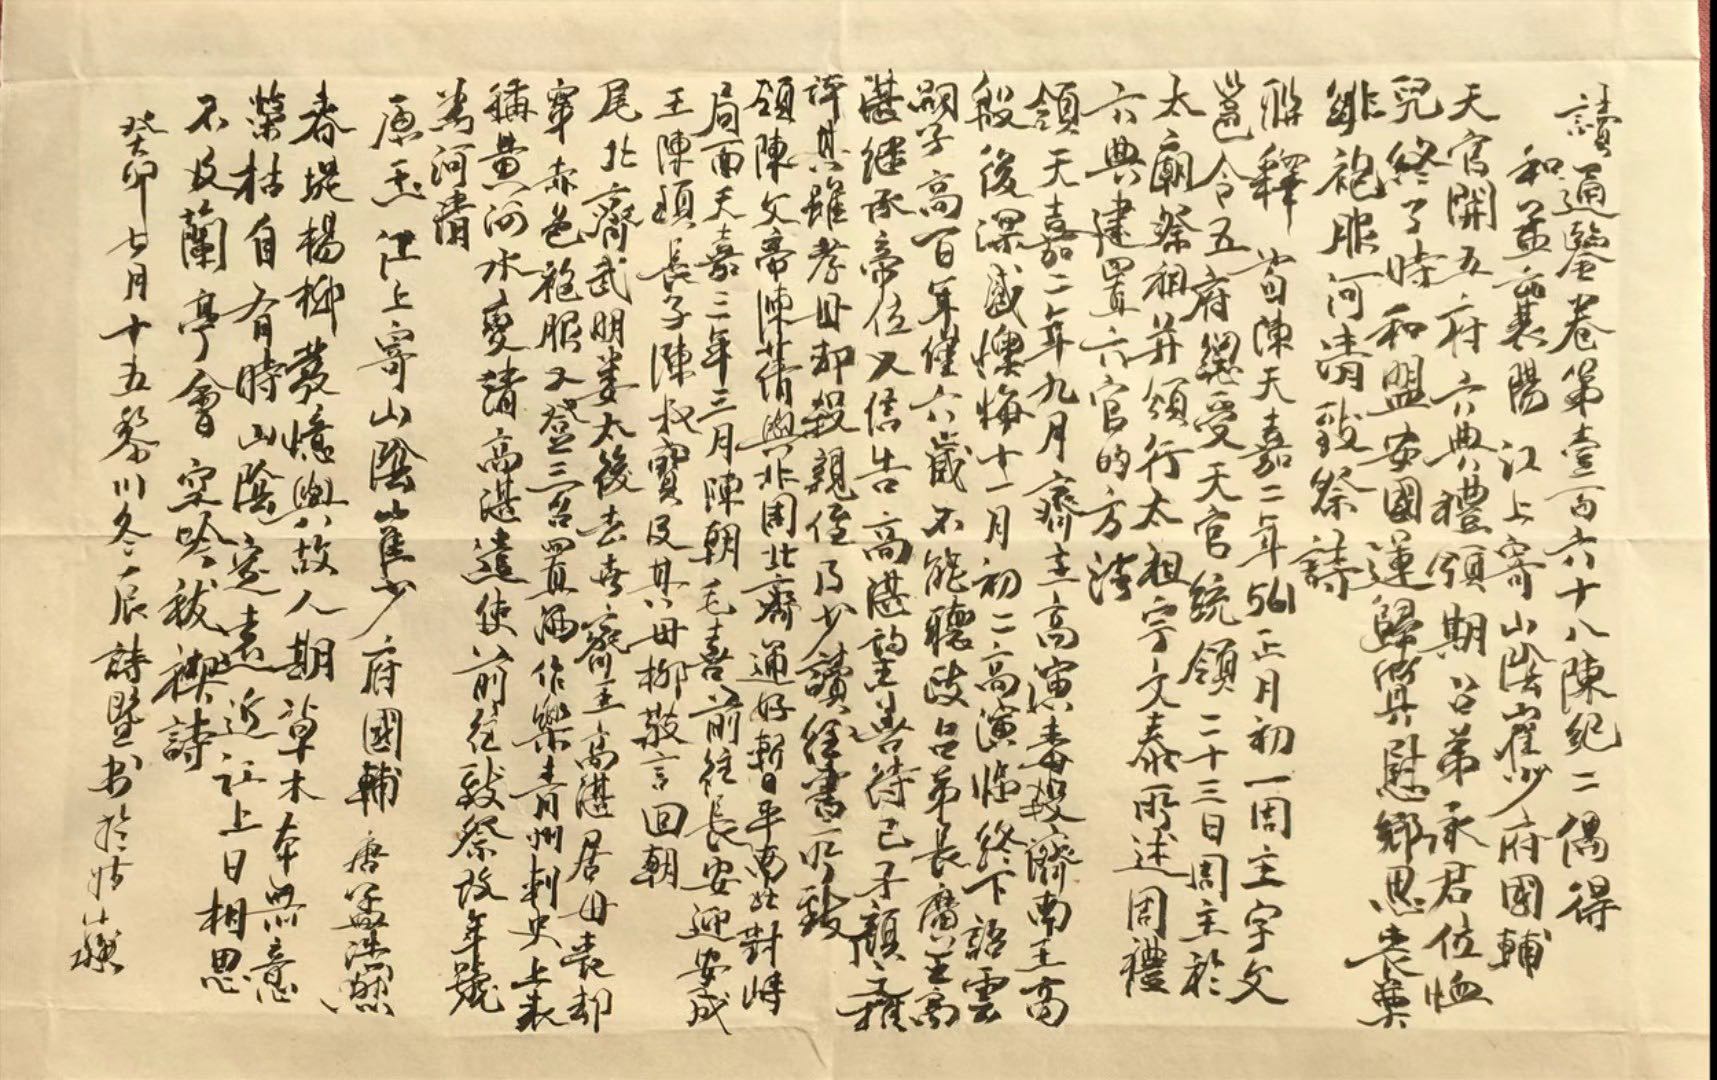 讀通鑒卷第壹百六十八陳紀二偶得
和孟襄陽 江上寄山陰崔少府國輔
天官開五府六典禮頒期召弟承君位恤
兒終了時和盟安國運歸幣慰鄉思喪棄
緋袍服河清致祭詩
瀕釋 省陳天嘉二年561正月初一周主宇文
邕令五府總受天官統領二十三日周主於
太廟祭祖并頒行太祖宇文泰所述周禮
六典建置六官的方法
領天嘉二年九月齊主高演毒殺濟南王高
殷後深感懊悔十一月初二高演臨終下詔雲
嗣子高百年僅六歲不能聽政召弟長廣王高
湛繼承帝位又信告高湛的善待己子顏之推
評其雖孝母却殺親侄乃少讀經書所致
頷陳文帝陳蒨與北周北齊通好暫平南北對峙
局面天嘉三年三月陳朝毛喜前往長安迎安成
王陳頊長子陳叔寶及其母柳敬言回朝
尾北齊武明婁太後去世齊主高湛居母喪却
穿赤色袍服又登三台置酒作樂青州刺史上表
稱黃河水變清高湛遣使前往致祭改年號
爲河清
原玉 江上寄山陰崔少府國輔 唐孟浩然
春堤楊柳發憶與故人期草木本無意
榮枯自有時山陰定遠近江上日相思
不及蘭亭會空吟祓禊詩
癸卯七月十五黎川冬辰詩暨书於姑蘇